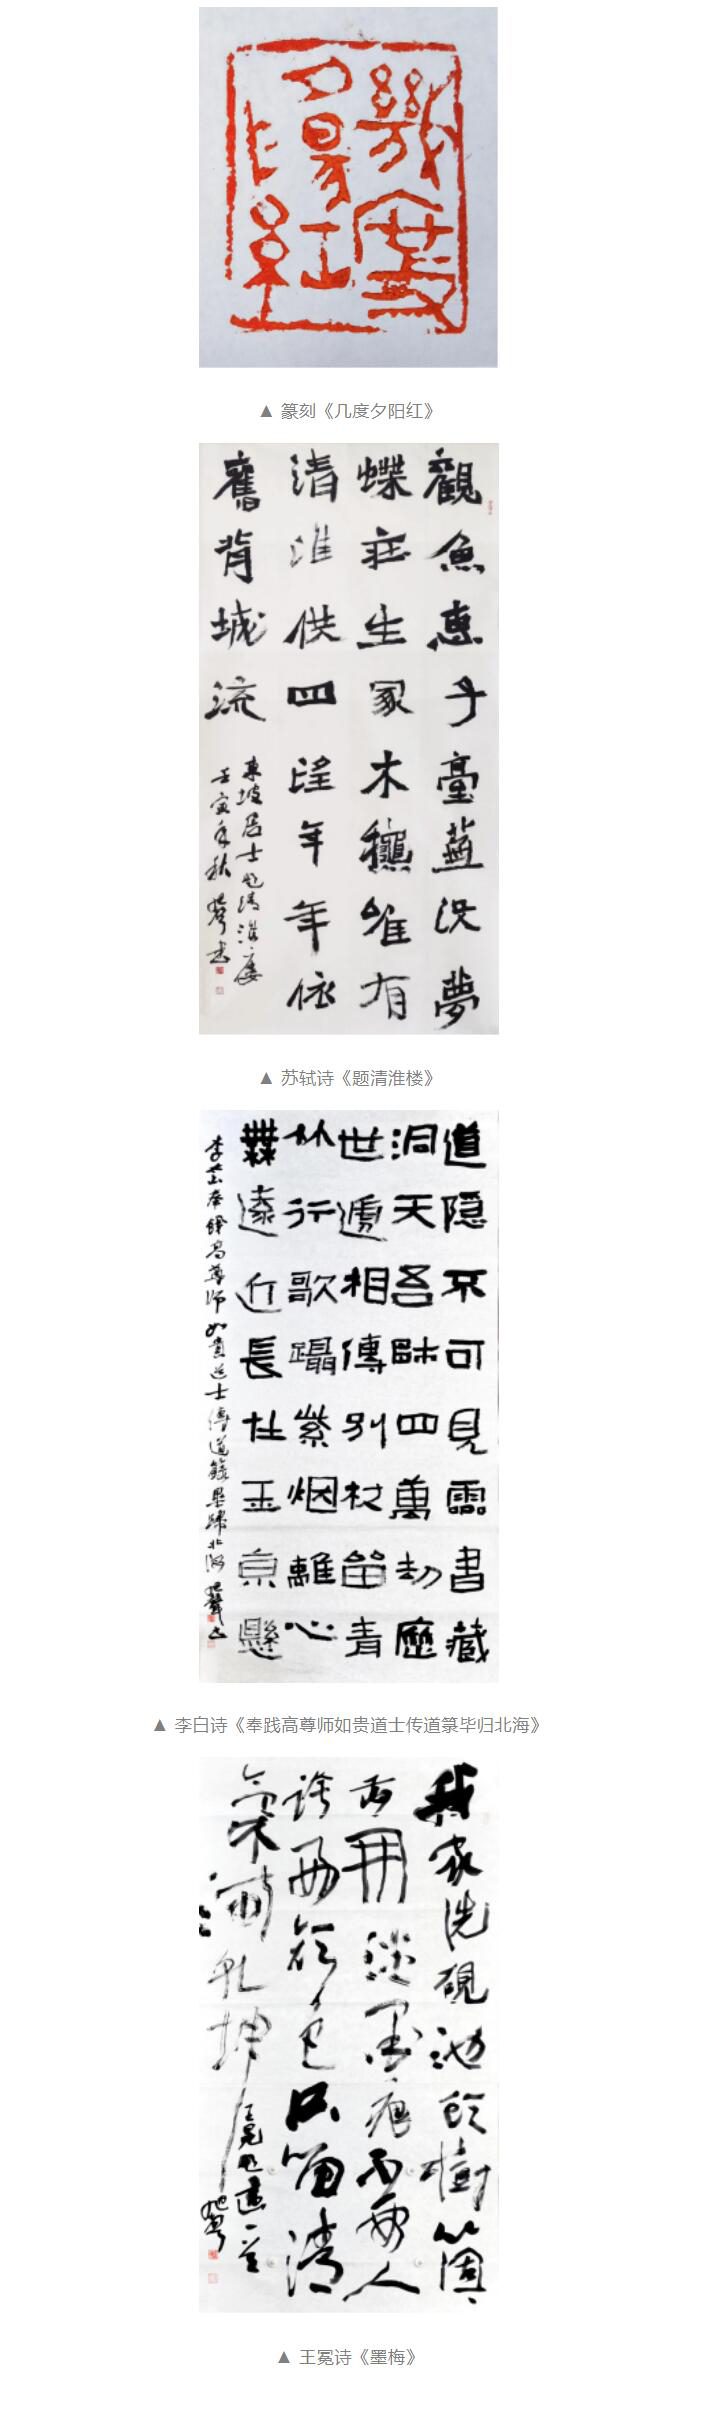 幾度
夕陽紅
▲ 篆刻《几度夕阳红》
觀魚惠子臺蕪沒夢
蝶莊生冢木穐唯有
清淮供四望年年依
舊背城流
東坡居士題清淮樓
壬寅年秋書
▲ 苏轼诗《题清淮楼》
道隐不可見霝書藏
洞天吾師四萬劫歷
世遞相傳別杖留青
竹行歌躡紫烟離心
無遠近長在玉京懸
李白奉餞高尊師如貴道士傳道籙畢歸北海
▲ 李白诗《奉践高尊师如贵道士传道箓毕归北海》
我家洗硯池頭樹箇箇
花開淡墨痕不要人
誇好顏色只留清
氣滿乾坤
王冕題畫一首
▲ 王冕诗《墨梅》